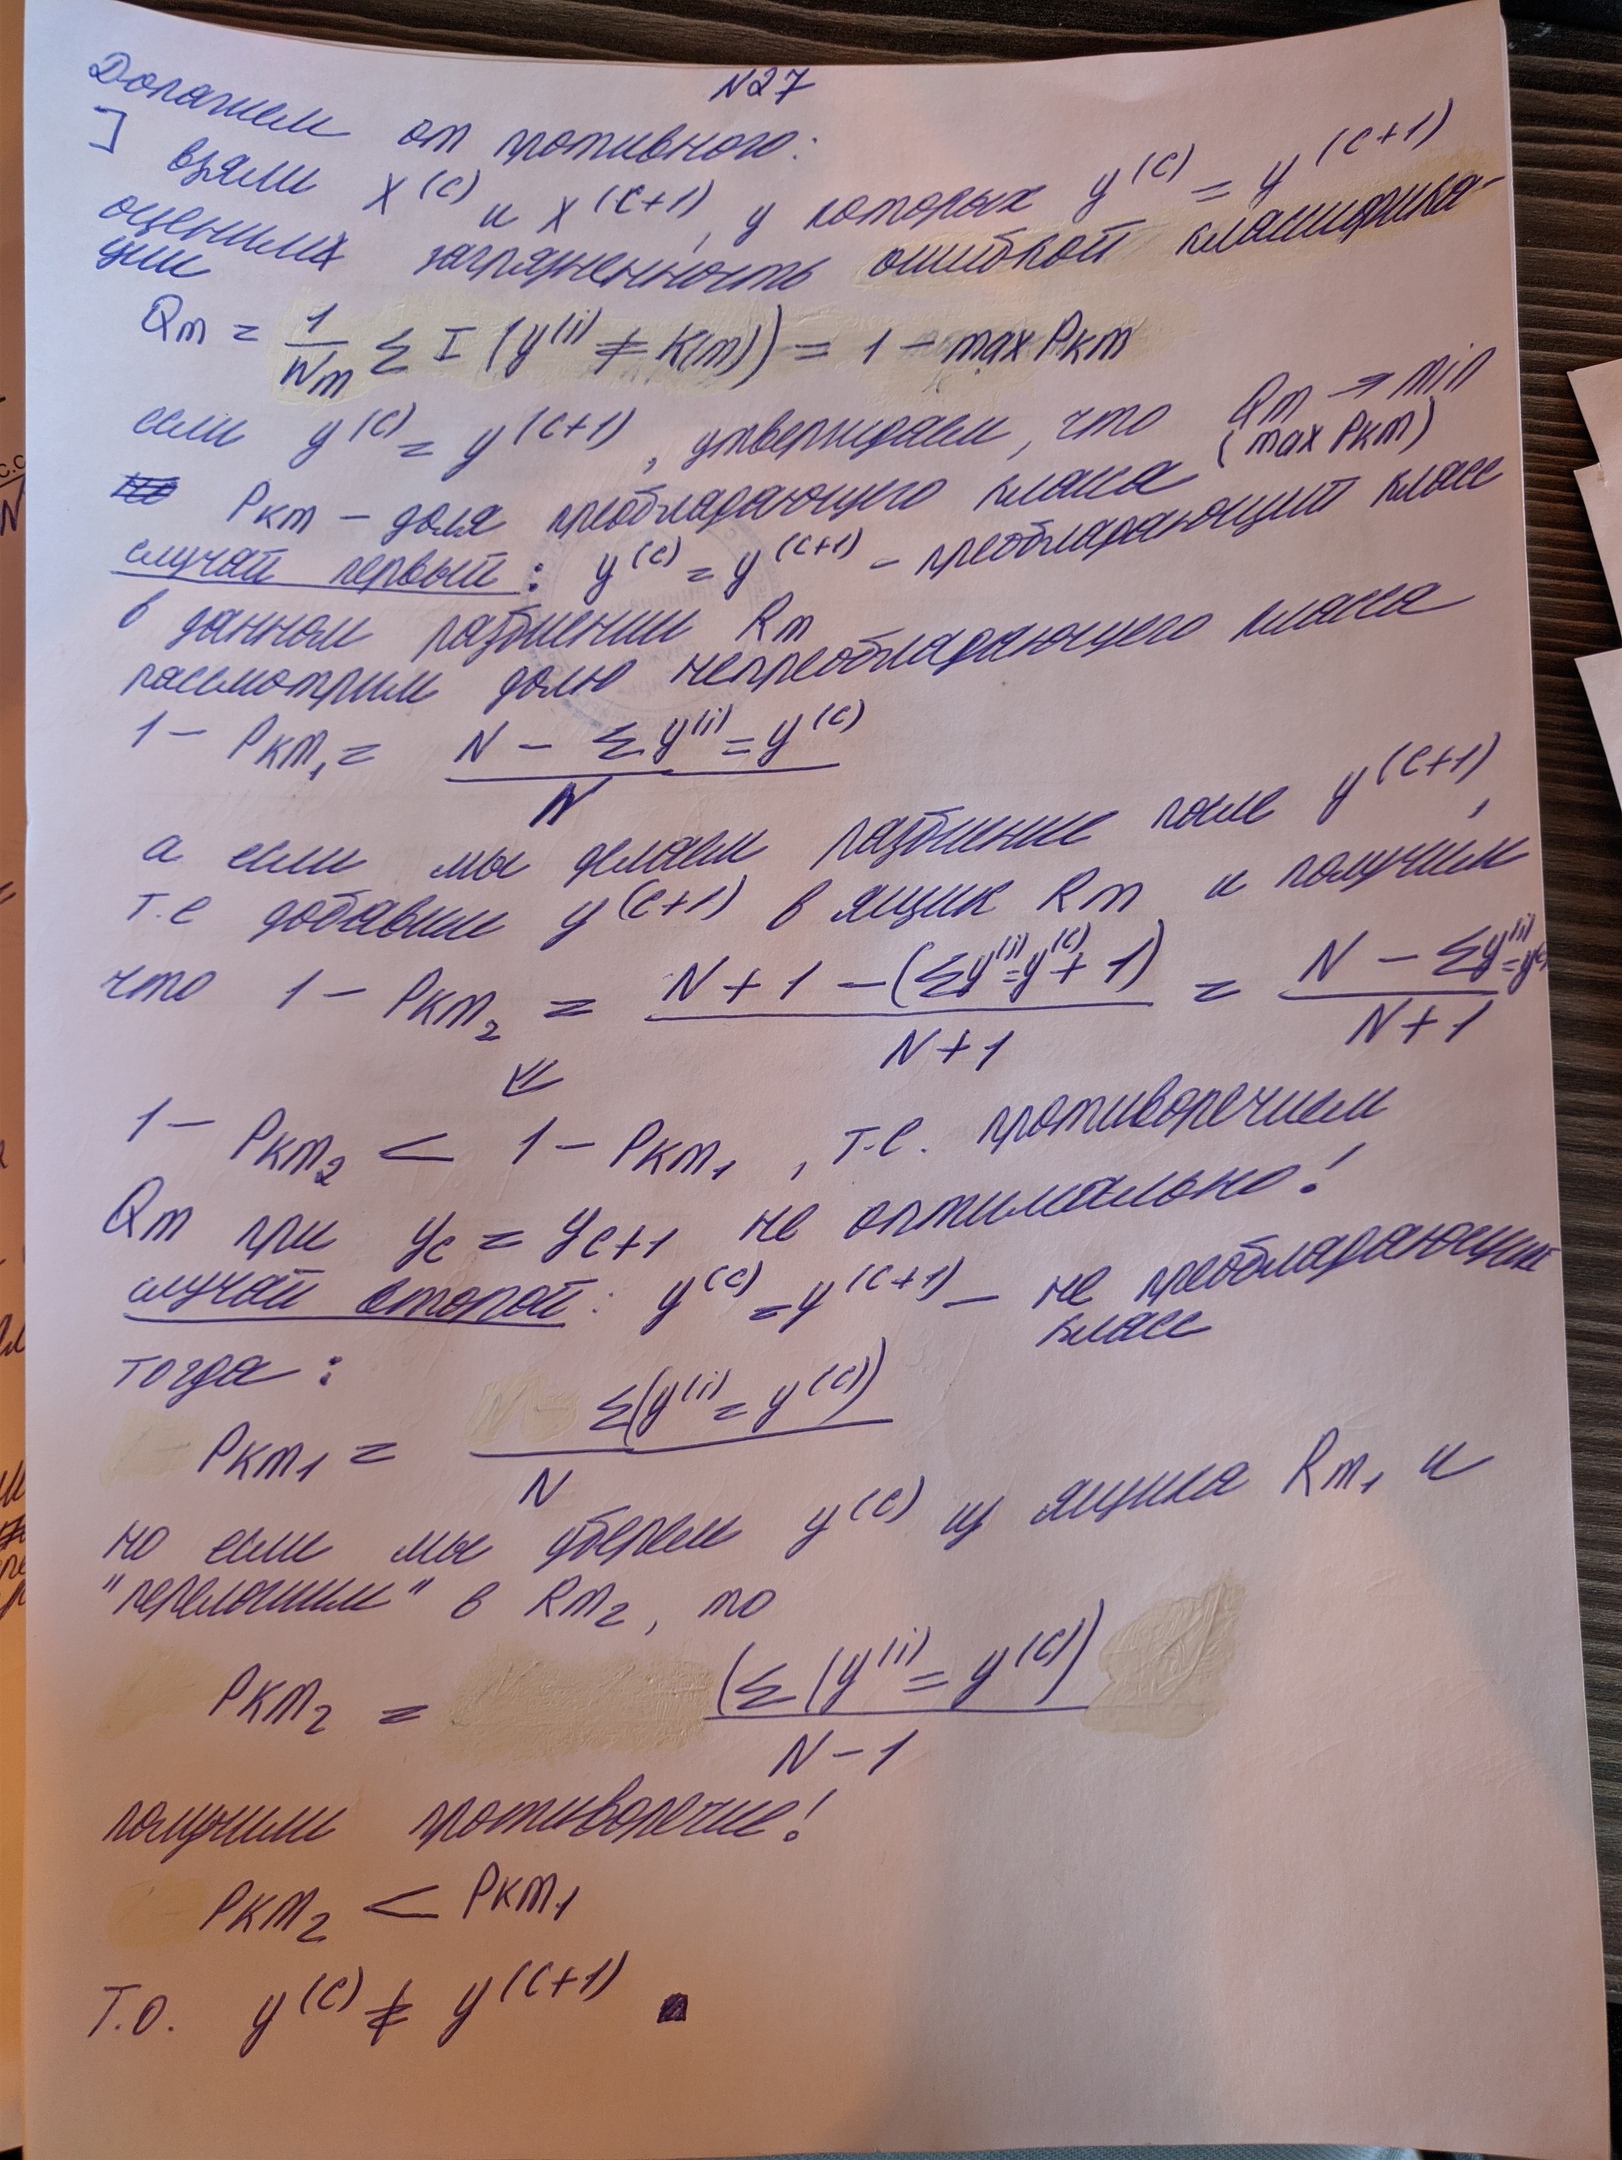 N27
Докажем от противного:
] взяли x^(c) и x^(c+1), у которых y^(c) = y^(c+1)
оценим загрязненность ошибкой классифика-
ции
Qm = 1/Nm Σ I (y^(i) ≠ K(m)) = 1 - max Pkm
если y^(c) = y^(c+1), утверждаем, что Qm → min
(max Pkm)
Pkm - доля преобладающего класса
случай первый: y^(c) = y^(c+1) - преобладающий класс
в данном разбиении Rm
рассмотрим долю непреобладающего класса
1 - Pkm₁ = (N - Σ y^(i) = y^(c)) / N
а если мы делаем разбиение после y^(c+1),
т.е добавим y^(c+1) в ящик Rm и получим
что 1 - Pkm₂ = (N + 1 - (Σ y^(i) = y^(c) + 1)) / (N+1) = (N - Σ y^(i) = y^(c)) / (N+1)
⇓
1 - Pkm₂ < 1 - Pkm₁, т.е. противоречием
Qm при yc = yc+1 не оптимально!
случай второй: y^(c) = y^(c+1) - не преобладающий
класс
тогда:
Pkm₁ = Σ(y^(i) = y^(c)) / N
но если мы уберем y^(c) из ящика Rm₁ и
"переложим" в Rm₂, то
Pkm₂ = (Σ (y^(i) = y^(c)) / N-1
получили противоречие!
Pkm₂ < Pkm₁
Т.О. y^(c) ≠ y^(c+1) ■